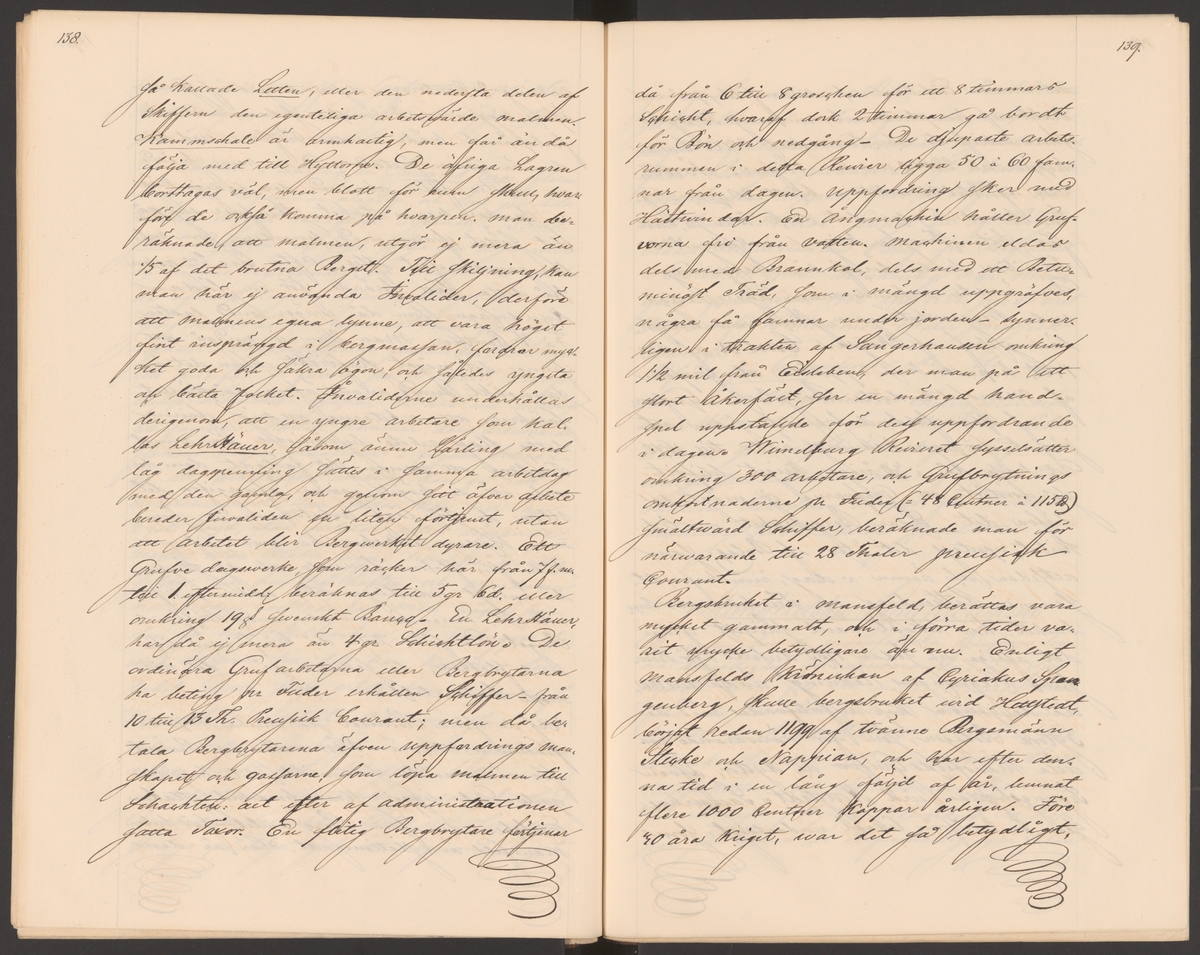 138.
så kallade Letten, eller den nedersta delen af
Skiffern den egentliga arbetsvärde malmen.
Kammschale är armhaltig, men får ändå
följa med till Hyttorna. De öfriga Lagren
borttagas väl, men blott för rum skull, hvar-
före de också komma på hvarpen. man be-
räknade, att malmen, utgör ej mera än
1/5 af det brutna Berget. Till skiljning, kan
man här ej använda Invalider, derföre
att malmens egna lynne, att vara höget
fint insprängd i bergmassan, fordrar myc-
ket goda och säkra ögon, och således yngsta
och bästa folket. Invaliderne underhållas
derigenom, att en yngre arbetare som kal-
las Lehr Häuer, såsom ännu Lärling med
låg dagspenning sättes i samma arbetslag
med den gamla, och genom sitt äfver arbete
bereder Invaliden en liten förtjenst, utan
att arbetet blir Bergwerket dyrare. Ett
Grufve dagsverke, som räcker här från 7 f.m.
till 1. eftermidd. beräknas till 5 gr Cd. eller
omkring 19 s svenskt Banco. En Lehr Häuer,
har då ej mera än 4 gr Schichtlön. De
ordinära Grufarbetarna eller Bergbrytarna
ha beting pr Fuder erhållen Schiffer – från
10 till 13 Th. Preussisk Courant; men då be-
tala Bergbrytarena äfven uppfordrings man-
skapet och gossarne, som löpa malmen till
Schachten: allt efter af administrationen
satta Taxor. En flitig Bergbrytare förtjenar
139.
då från 6 till 8 groschen för ett 8 timmars
Schicht, hvaraf dock 2 timmar gå bordt
för Bön och nedgång – De djupaste arbets-
rummen i detta Revier ligga 50 à 60 fam-
nar från dagen. Uppfordring sker med
Hästvindar. En Ångmaschin håller Gruf-
vorna fri från vatten. Maschinen eldas
dels med Braunkol, dels med ett Betu-
minöst Träd, som i mängd uppgräfves,
några få famnar under jorden – synner-
ligen i trakten af Sangerhausen omkring
1 1/2 mil från Eisleben, der man på ett
stort Åkerfält, ser en mängd hand-
spel uppstälde för dess uppfordrande
i dagen. Wimelburg Revieret sysselsätter
omkring 300 arbetare, och Grufbrytnings
omkostnaderne pr Fuder (= 48 Centner à 115 ℔)
smältwärd Schiffer, beräknade man för
närwarande till 28 Thaler preussisk
Courant.
Bergsbruket i Mansfeld, berättas vara
mycket gammalt, och i förra tider va-
rit mycke betydligare än nu. Enligt
Mansfelds Krönickan af Cyriakus Span
genberg, skulle bergsbruket wid Hettstedt,
börjat redan 1199 af tvänne Bergsmänn
Necke och Nappian, och har efter den-
na tid i en lång följd af år, lemnat
flere 1000 Centner Koppar årligen. Före
30 åra Kriget, war det så betydligt,